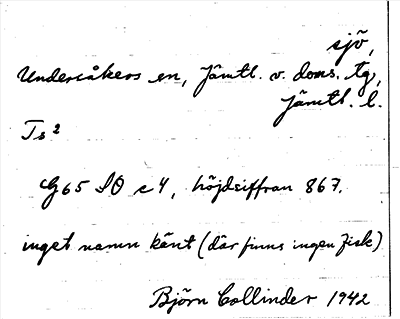 sjö,
Undersåkers sn, Jämtl. v. doms. tg,
Jämtl. l.
Ts 2
G65 SO c4, höjdsiffran 867.
inget namn känt (där finns ingen fisk)
Björn Collinder 1942